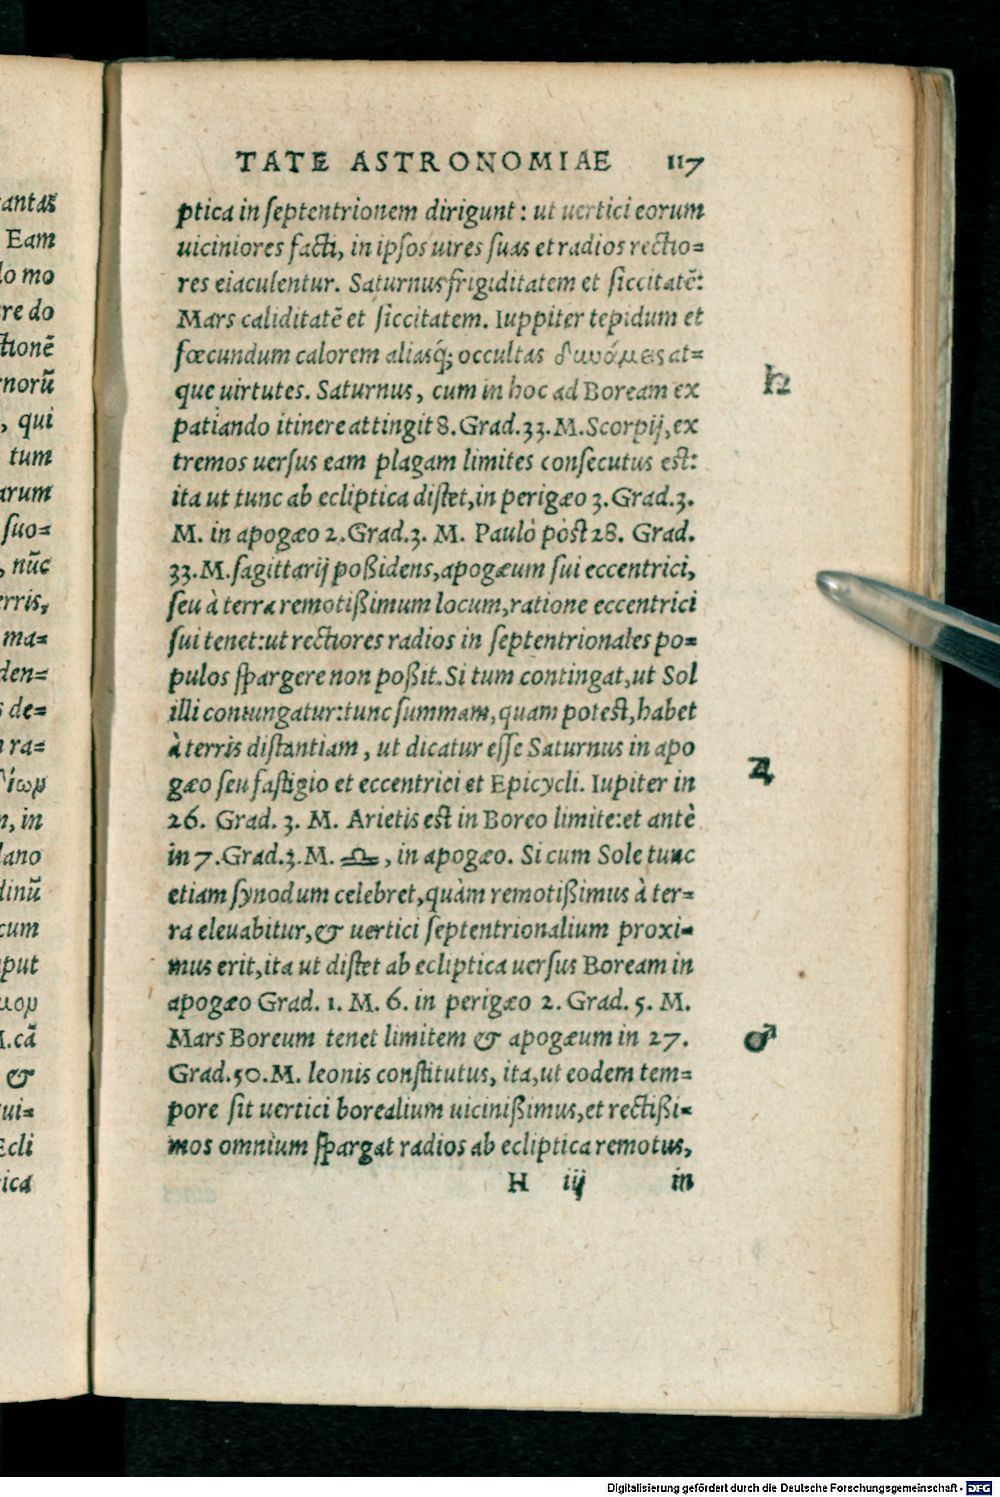 antas
Eam
lo mo
re do
ctionē
norū
, qui
tum
arum
suo=
, nūc
erris,
ma=
den=
s de=
ra=
ίωμ
n, in
lano
dinū
cum
put
μομ
M.cā
&
ui-
Ecli
ica
TATE ASTRONOMIAE 117
ptica in septentrionem dirigunt: ut uertici eorum
uiciniores facti, in ipsos uires suas et radios rectio=
res eiaculentur. Saturnus frigiditatem et siccitatē:
Mars caliditatē et siccitatem. Iuppiter tepidum et
fœcundum calorem aliasq́; occultas δυνάμεις at=
que uirtutes. Saturnus, cum in hoc ad Boream ex
patiando itinere attingit 8.Grad.33.M.Scorpij,ex
tremos uersus eam plagam limites consecutus est:
ita ut tunc ab ecliptica distet,in perigæo 3.Grad.3.
M. in apogæo 2.Grad.3. M. Paulò pòst 28. Grad.
33.M.sagittarij poßidens,apogæum sui eccentrici,
seu à terra remotißimum locum,ratione eccentrici
sui tenet:ut rectiores radios in septentrionales po=
pulos spargere non poßit.Si tum contingat,ut Sol
illi coniungatur:tunc summam,quam potest,habet
à terris distantiam, ut dicatur esse Saturnus in apo
gæo seu fastigio et eccentrici et Epicycli. Iupiter in
26. Grad. 3. M. Arietis est in Boreo limite:et antè
in 7.Grad.3.M. ♎, in apogæo. Si cum Sole tunc
etiam synodum celebret,quàm remotißimus à ter=
ra eleuabitur,& uertici septentrionalium proxi=
mus erit,ita ut distet ab ecliptica uersus Boream in
apogæo Grad. 1. M. 6. in perigæo 2. Grad. 5. M.
Mars Boreum tenet limitem & apogæum in 27.
Grad.50.M. leonis constitutus, ita,ut eodem tem=
pore sit uertici borealium uicinißimus,et rectißi=
mos omnium spargat radios ab ecliptica remotus,
H iij in
♄
♃
♂
Digitalisierung gefördert durch die Deutsche Forschungsgemeinschaft - DFG